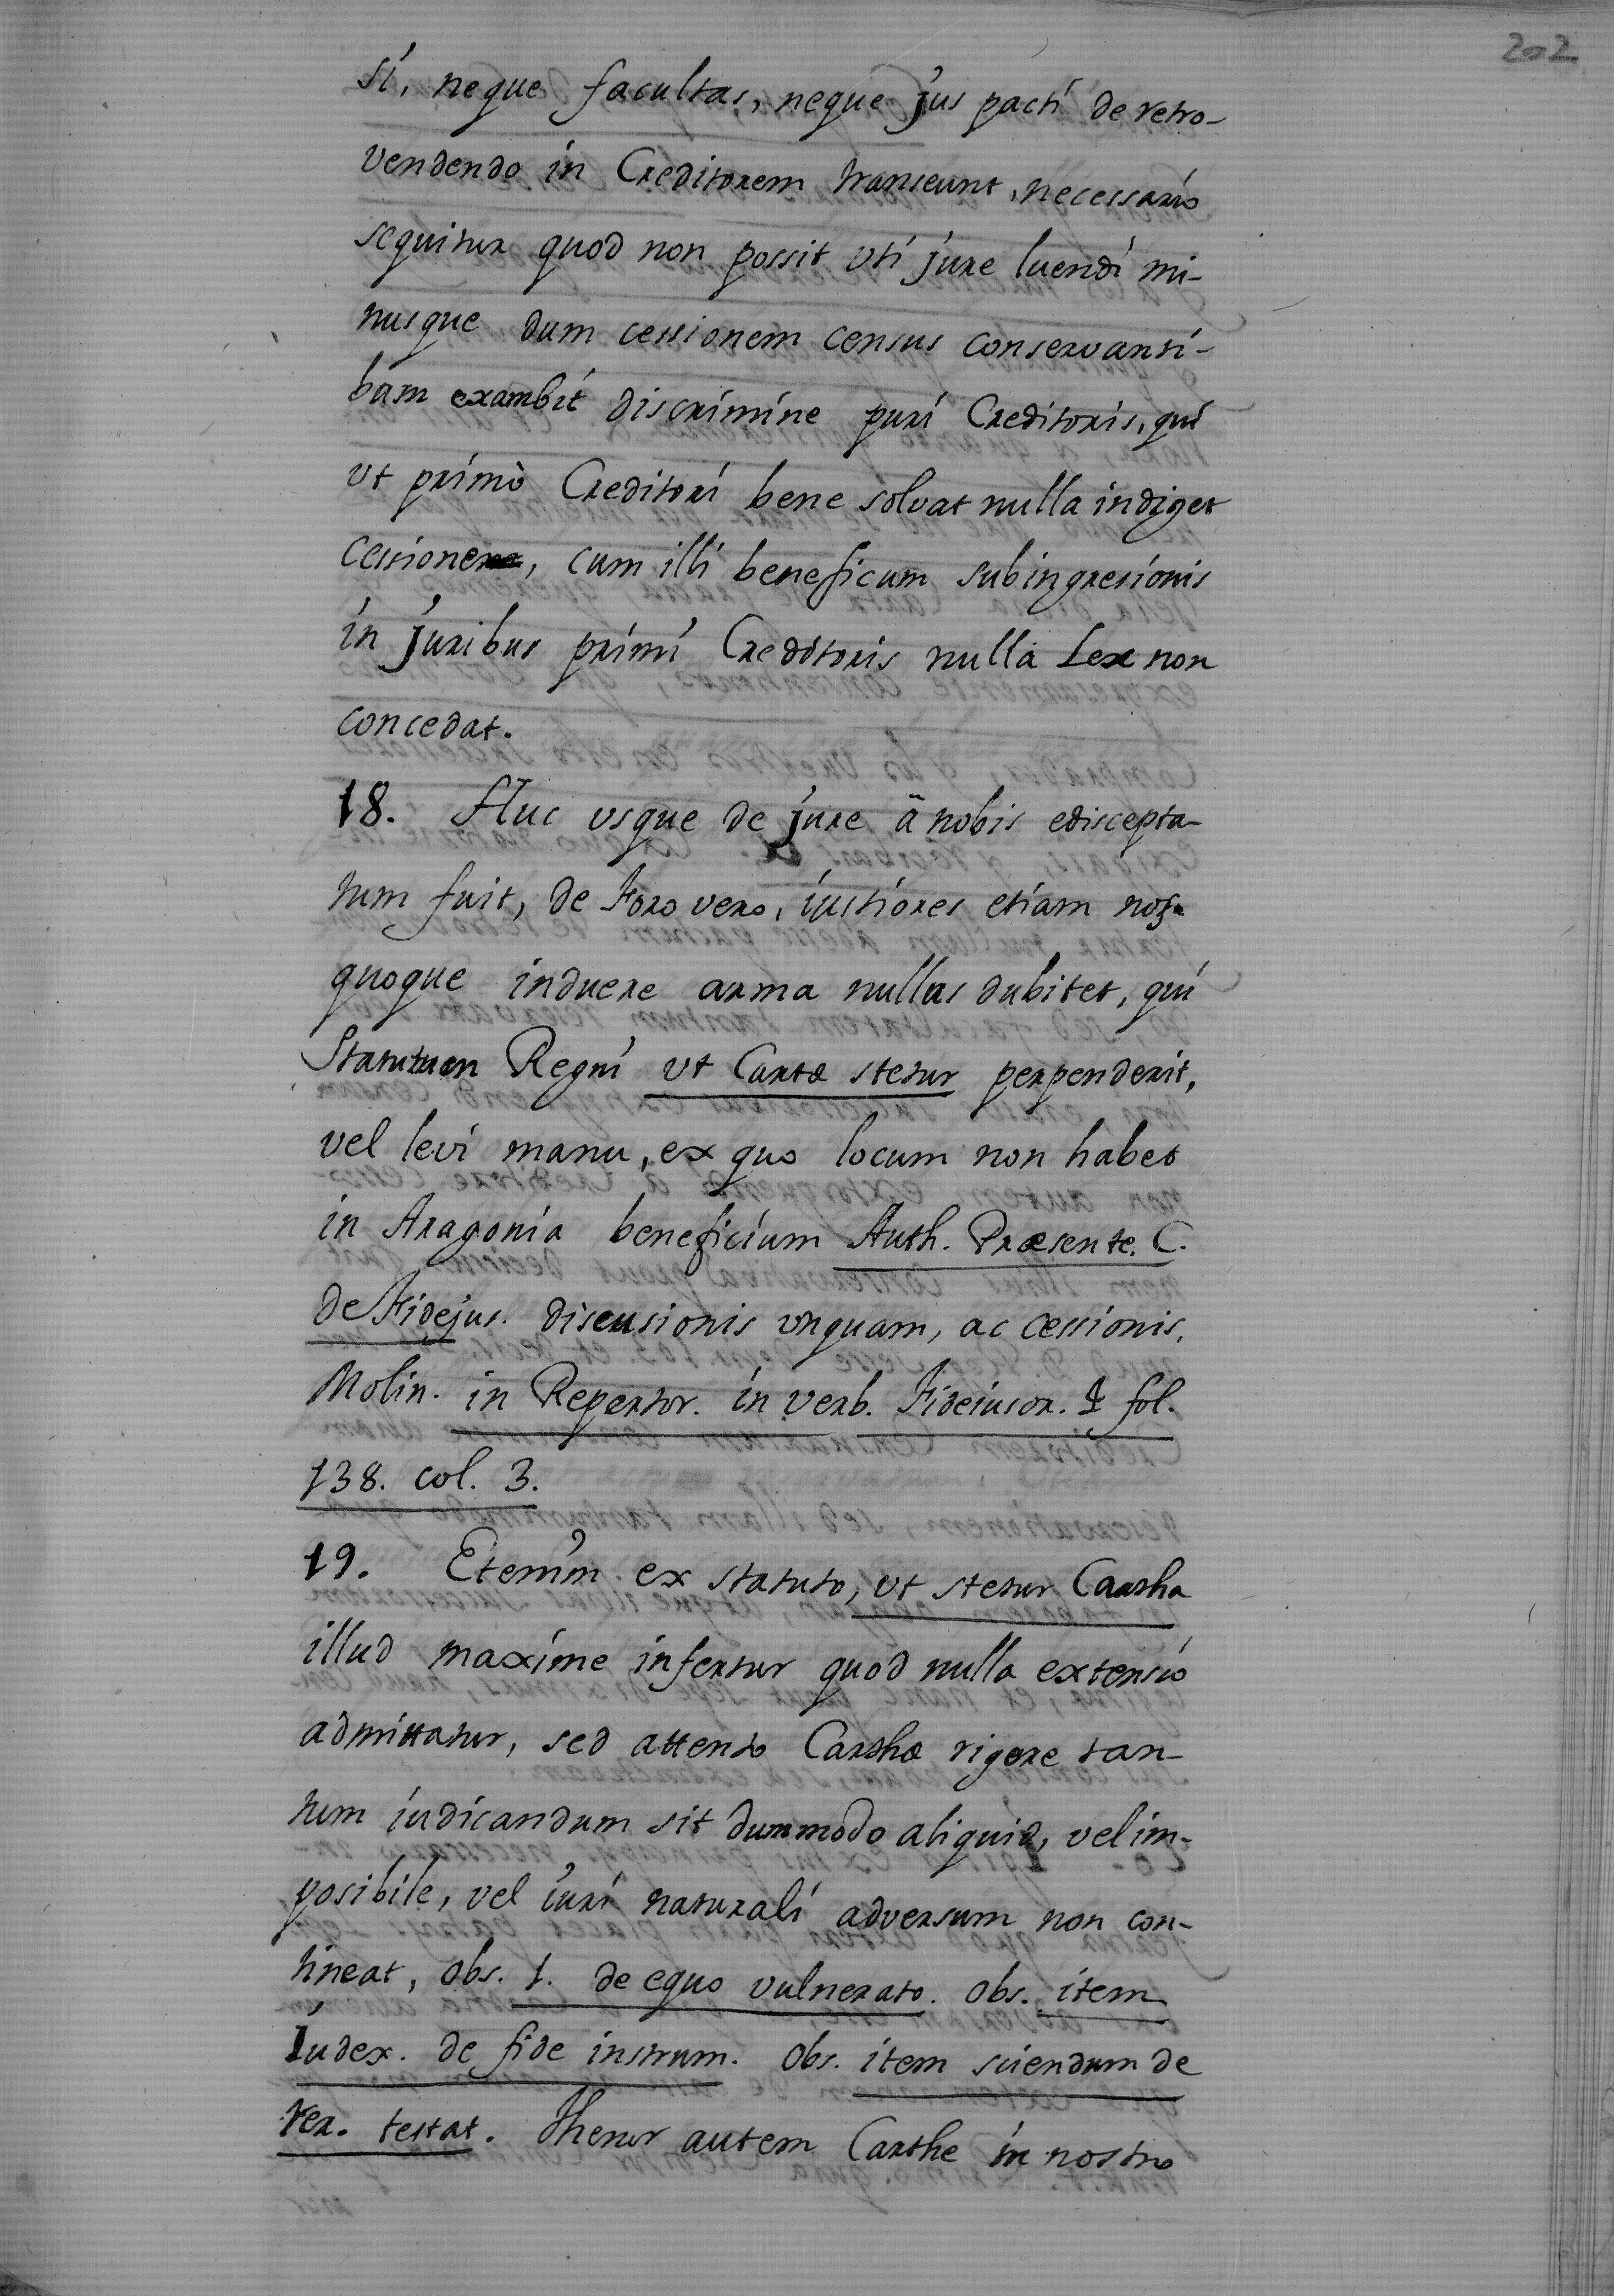 202
si, neque facultas, neque jus pacti de retro-
vendendo in Creditorem transeunt, necessario
sequitur quod non possit uti jure luendi mi-
nusque dum cessionem census conservanti-
bam exambit discrimine puri Creditoris, qui
ut primò Creditori bene solvat nulla indiget
cessione, cum illi beneficum subingresionis
in juribus primi Creditoris nulla Lex non
concedat.
18. Huc usque de jure ä nobis ediscepta-
tum fuit, de Foro vero, iustiores etiam nos
quoque induere arma nullus dubitet, qui
Statutum Regni ut Cartæ stetur perpenderit,
vel levi manu, ex quo locum non habet
in Aragonia beneficium Auth. Præsente. C.
de Fidejus. discusionis unquam, ac cessionis,
Molin. in Repertor. in verb. Fideiusor. fol.
138. col. 3.
19. Etenim ex statuto, ut stetur Cartha
illud maxime infertur quod nulla extensio
admittatur, sed attento Carthæ rigore tan-
tum iudicandum sit dummodo aliquid, vel im-
posibile, vel iuri naturali adversum non con-
tineat, obs. 1. de equo vulnerato. obs. item
Iudex. de fide instrum. obs. item sciendum de
rer. testat. Thenor autem Carthe in nostro